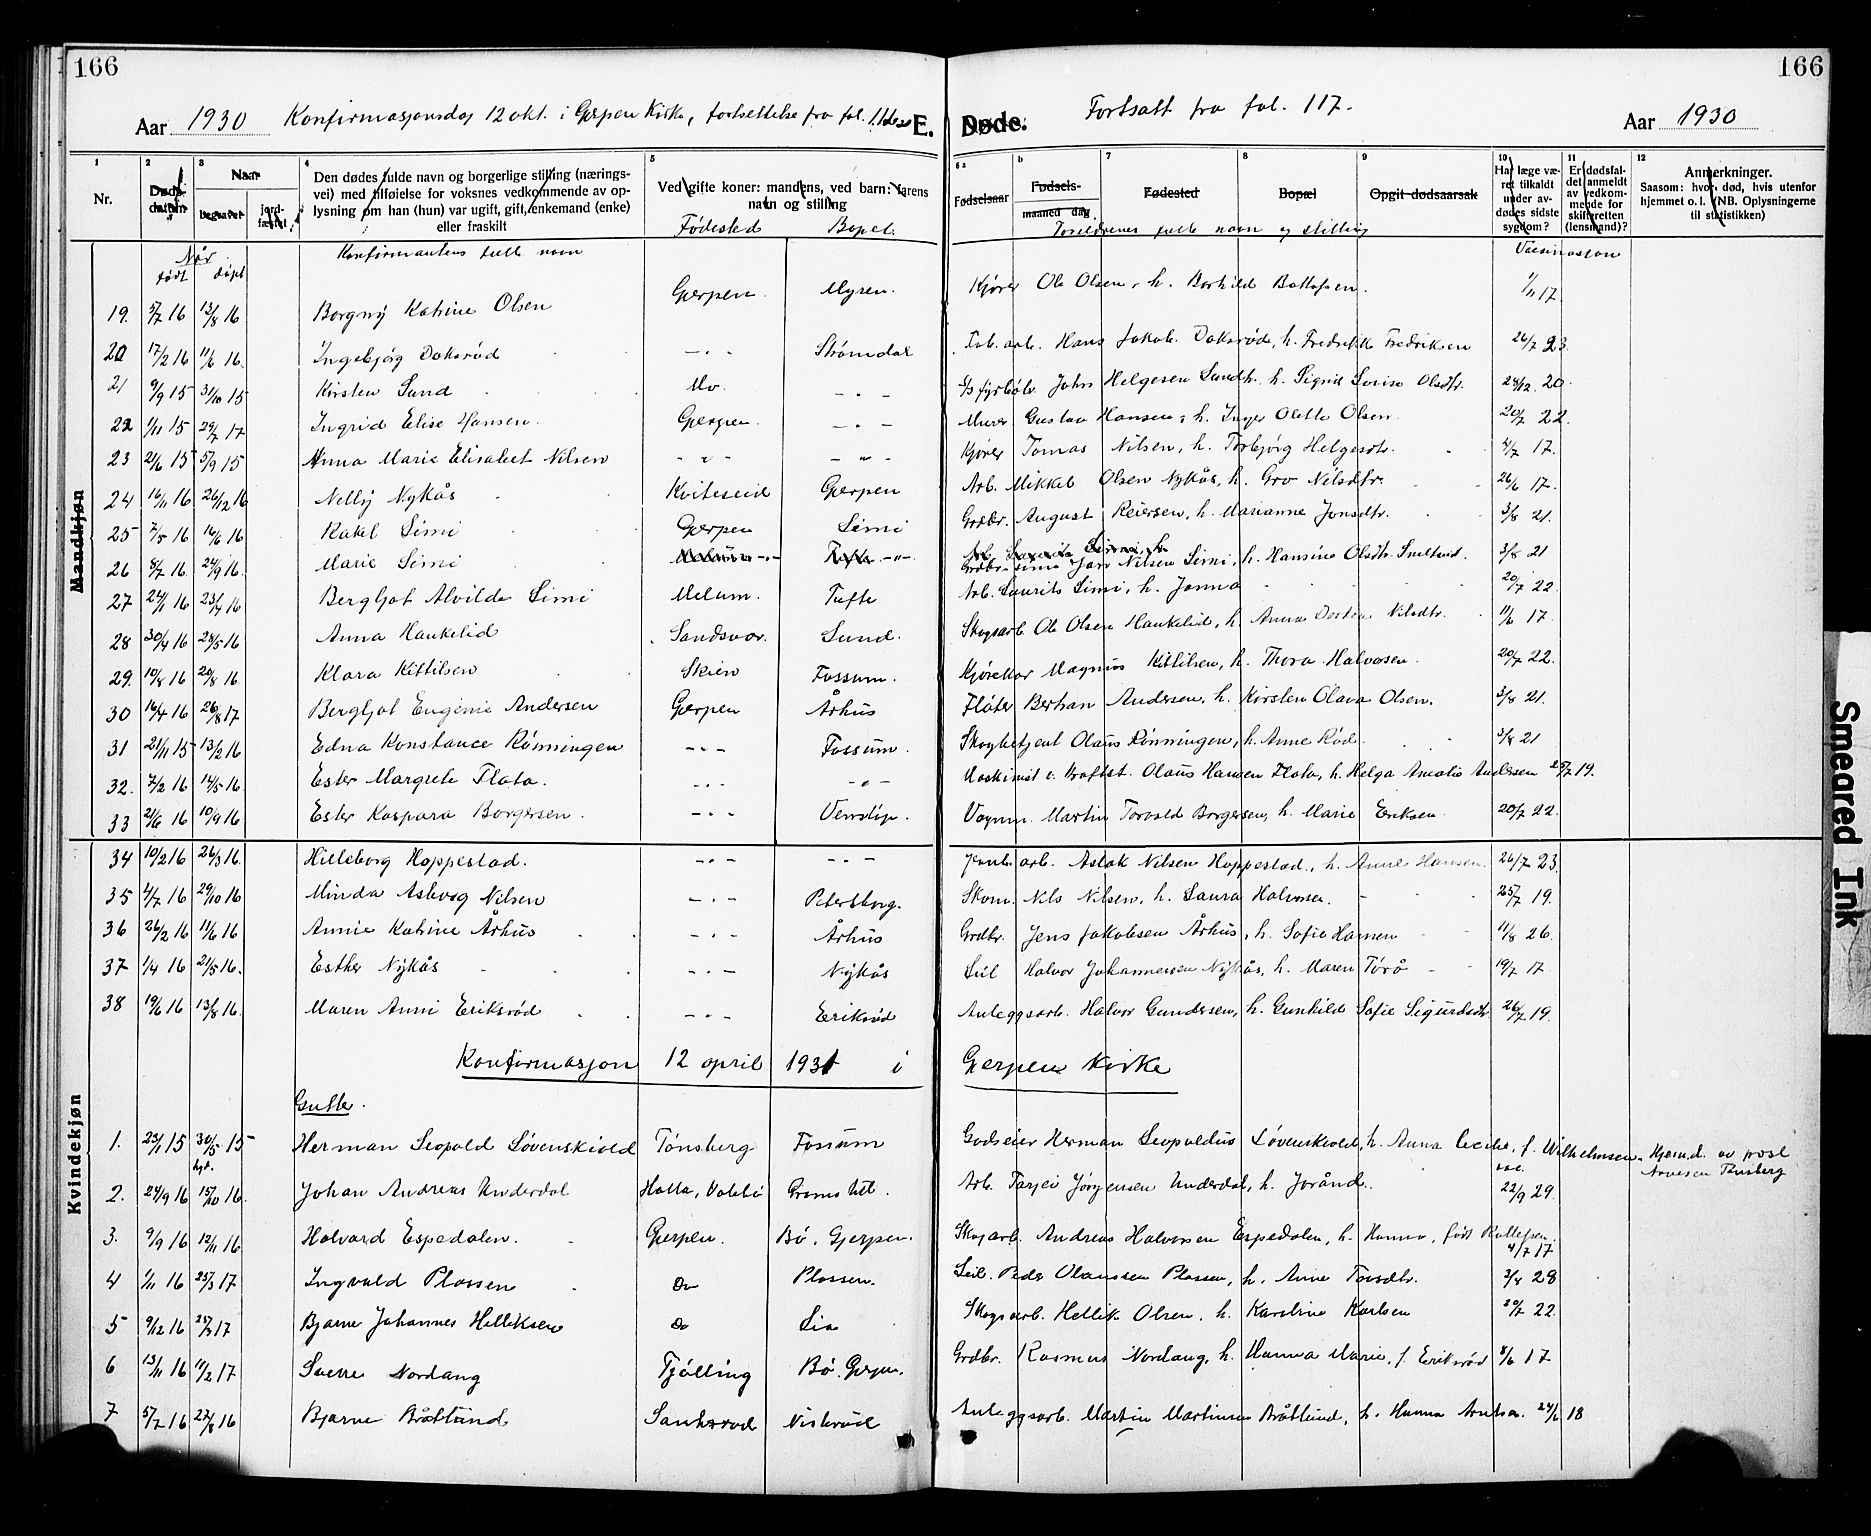 166
166
Aar 1930 Konfirmasjonsdag 12 okt. i Gjerpen Kirke, fortsettelse fra fol. E. Døde. Fortsatt fra fol. 117. Aar 1930
1 2 3 4 5 6 a b 7 8 9 10 11 12
Nr. Døds-datum Naar begravet jord-fæstet Den dødes fulde navn og borgerlige stilling (nærings-vei) med tilføielse for voksnes vedkommende av op-lysning om han (hun) var ugift, gift, enkemand (enke) eller fraskilt Ved gifte koner: mandens, ved barn: farens navn og stilling Fødselsaar Fødsels- maaned dag Fødested Bopæl Opgit dødsaarsak Har læge væ-ret tilkaldt under av-dødes sidste sygdom? Er dødsfal-det anmeldt av vedkom-mende for skifteretten (lensmand)? Anmerkninger. Saasom: hvor død, hvis utenfor hjemmet o. l. (NB. Oplysningerne til statistikken)
Når født døpt Konfirmantens fulle navn Fødested Bopel. Foreldrenes fulle navn og stilling Vaksinasjon
Mandkjøn
19. 5/7 16 13/8 16 Borgny Katrine Olsen Gjerpen. Myren. Kjører Ole Olsen, h. Borhild Bottolfsen. 1/11 17.
20 17/2 16 11/6 16. Ingebjøg Doksrød - " - Strømdal Fab. arb. Hans Jakob. Doksrød, h. Fredrikke Fredriksen 26/7 23.
21 9/9 15 31/10 15 Kirsten Sund Mo. - " - S/S fyrbøt. John Helgesen Sundh. h. Sigrid Lovise Olsdtr. 28/12 20.
22 1/11 15 29/7 17 Ingrid Elise Hansen. Gjerpen. - " - Murer Gustav Hansen, h. Inger Olette Olsen 20/7 22.
23 2/6 15 5/9 15 Anna Marie Elisabet Nilsen - " - - " - Kjører Tomas Nilsen, h. Torbjørg Helgesdtr. 4/7 17.
24 16/11 16 26/12 16 Nelly Nykås Kviteseid Gjerpen Arb. Mikkel Olsen Nykås, h. Gro Nilsdtr. 26/6 17.
25 7/5 16 14/6 16 Rakel Limi Gjerpen Limi Grdbr. August Reiersen, h. Marianne Jonsdtr. 3/8 21.
26 8/7 16. 24/9 16. Marie Limi - " - - " - Grdbr. Limi Jan Nilsen Limi, h. Hansine Olsdtr. 3/8 21
27 24/1 16 23/4 16 Bergljot Alvilde Limi Melum. Tufte Arb. Laurits Limi, h. Janna 20/7 22.
28 30/4 16 28/5 16 Anna Haukelid Sandsvær. Lund. Skogsarb. Ole Olsen Haukelid, h. Anna Dortea Nilsdtr. 11/6 17.
29. 10/8 16 20/8 16. Klara Kittilsen Skien Fossum. Kjørekar Magnus Kittilsen, h. Thora Halvorsen. 20/7 22.
30 16/4 16 26/8 17 Bergljot Eugenie Andersen Gjerpen Århus Fløter Bertran Andersen, h. Kirsten Olava Olsen. 3/8 21.
31 21/11 15 13/2 16 Edna Konstance Rønningen - " - Fossum. Skogbetjent Olaus Rønningen, h. Anne Rød. 3/8 21
32. 7/2 16 14/5 16 Ester Margrete Flata. - " - - " - Maskinist v. Kraftst. Olaus Hansen Flata, h. Helga Amalie Andersen 25/7 19.
33 21/6 16 10/9 16 Ester Kaspara Borgersen. - " - Venstøp. Vognm. Martin Torvald Borgersen, h. Marie Eriksen 20/7 22.
34 10/2 16 26/3 16. Hilleborg Hoppestad. - " - - " - Jernb. arb. Aslak Nilsen Hoppestad, h. Anne Hansen. 26/7 23.
35 4/7 16 29/10 16 Minda Asborg Nilsen - " - Petersborg. Skom. Nils Nilsen, h. Laura Halvorsen. 25/7 19.
36 26/2 16 11/6 16 Annie Katrine Århus - " - Århus Grdbr. Jens Jakobsen Århus, h. Sofie Hansen 11/8 26.
37 1/4 16 21/5 16. Esther Nykås - " - Nykås Leil Halvor Johannesen Nykås, h. Maren Tørå 19/7 17.
38 19/6 16 13/8 16. Maren Anni Eriksrød - " - Eriksrød Anleggsarb. Halvor Gundersen, h. Gunhild Sofie Sigurdsdtr 26/7 19.
Konfirmasjon 12 april 1931 i Gjerpen Kirke
Kvindekjøn
Gutter.
1. 23/1 15 30/5 15 hjd. Herman Leopold Løvenskiold Tønsberg Fossum Godseier Herman Leopoldus Løvenskiold, h. Anna Cecilie, f. Wilhelmsen. Hjemd. av prost
2. 24/9 16 15/10 16. Johan Andreas Underdal Holla, Valebø Arb. Tarjei Jørgensen Underdal, h. Jorånd. vac. 22/9 29.
3. 9/9 16 12/11 16 Halvard Espedalen. Gjerpen. Bø. Gjerpen. Skogarb. Andreas Halvorsen Espedalen, h. Hanna, født Rollefsen. 4/7 17
4 1/11 16 25/3 17 Ingvald Plassen Do Plassen. Leil. Peder Olaussen Plassen, h. Anne Torsdtr. 3/4 28
5 9/12 16 25/3 17 Bjarne Johannes Helliksen Do Lia Skogsarb. Hellik Olsen, h. Karoline Karlsen 20/7 22.
6 13/11 16 11/2 17 Sverre Nordang Tjølling Bø. Gjerpen. Grdbr. Rasmus Nordang, h. Hanna Marie, f. Eriksrød 8/6 17
7 5/7 16 27/8 16 Bjarne Bråtlund Sanherod Nisterud Anleggsarb. Martin Martinsen Bråtlund, h. Hanna 24/6 18
Smeared Ink